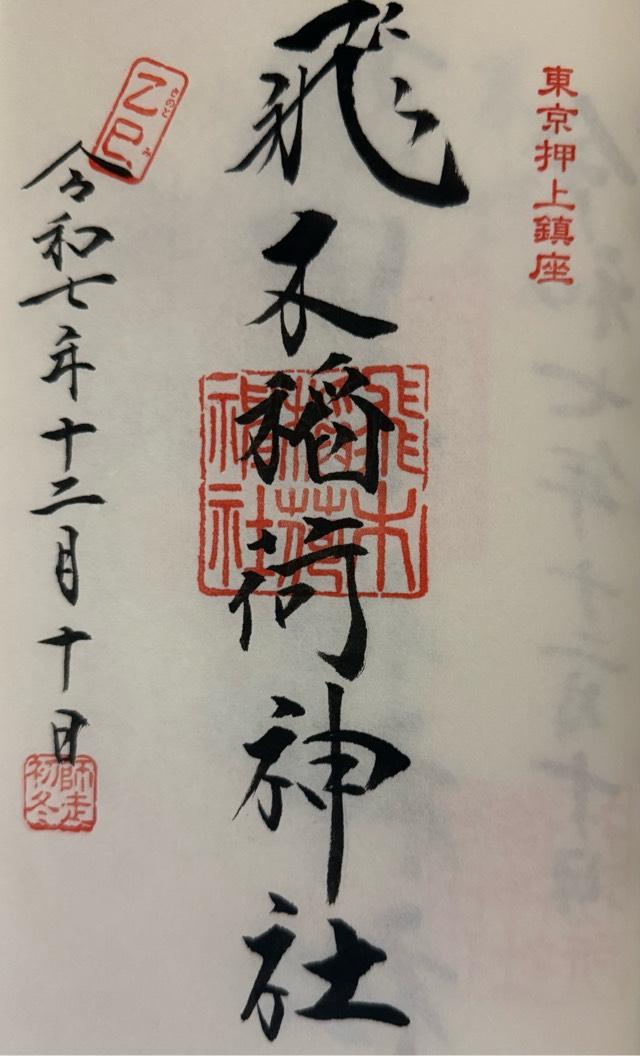 東京押上鎮座
飛木稲荷神社
飛木
稲荷
神社
乙巳
きのと み
令和七年十二月十日
師走
初冬